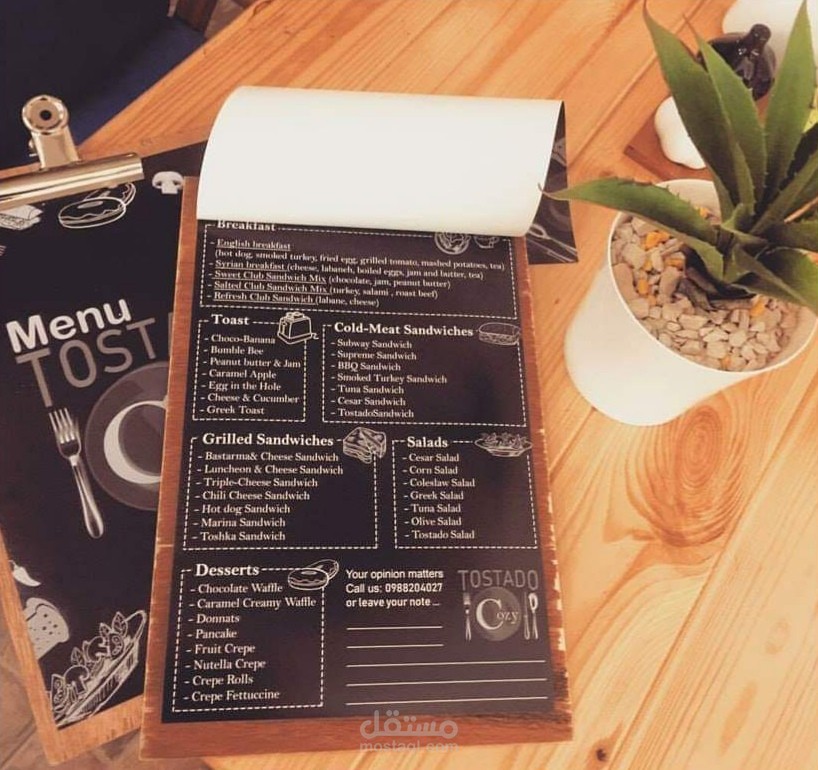 Menu
TOST
C
Breakfast
- English breakfast
(hot dog, smoked turkey, fried egg, grilled tomato, mashed potatoes, tea)
- Syrian breakfast (cheese, labaneh, boiled eggs, jam and butter, tea)
- Sweet Club Sandwich Mix (chocolate, jam, peanut butter)
- Salted Club Sandwich Mix (turkey, salami , roast beef)
- Refresh Club Sandwich (labane, cheese)
Toast
- Choco-Banana
- Bumble Bee
- Peanut butter & Jam
- Caramel Apple
- Egg in the Hole
- Cheese & Cucumber
- Greek Toast
Cold-Meat Sandwiches
- Subway Sandwich
- Supreme Sandwich
- BBQ Sandwich
- Smoked Turkey Sandwich
- Tuna Sandwich
- Cesar Sandwich
- TostadoSandwich
Grilled Sandwiches
- Bastarma& Cheese Sandwich
- Luncheon & Cheese Sandwich
- Triple-Cheese Sandwich
- Chili Cheese Sandwich
- Hot dog Sandwich
- Marina Sandwich
- Toshka Sandwich
Salads
- Cesar Salad
- Corn Salad
- Coleslaw Salad
- Greek Salad
- Tuna Salad
- Olive Salad
- Tostado Salad
Desserts
- Chocolate Waffle
- Caramel Creamy Waffle
- Donnats
- Pancake
- Fruit Crepe
- Nutella Crepe
- Crepe Rolls
- Crepe Fettuccine
Your opinion matters
Call us: 0988204027
or leave your note ...
TOSTADO
Cozy
مستقل
mostaql.com